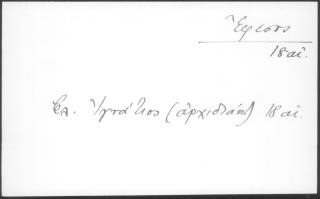 Ἔφεσος
18 αἰ.
Βλ. Ἰγνάτιος (ἀρχιδιάκ) 18 αἰ.